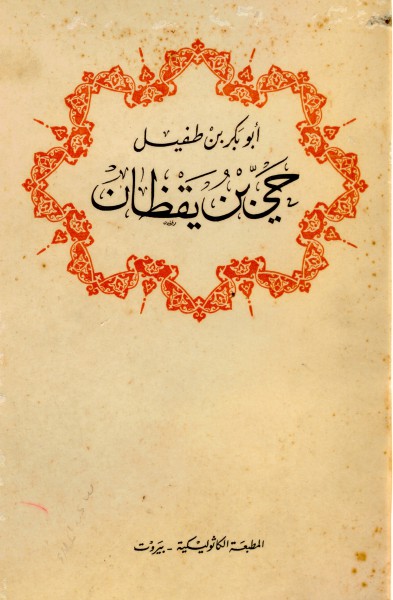 أبو بكر بن طفيل
حَيّ بْنُ يَقْظَان
المطبعة الكاثوليكية - بيروت